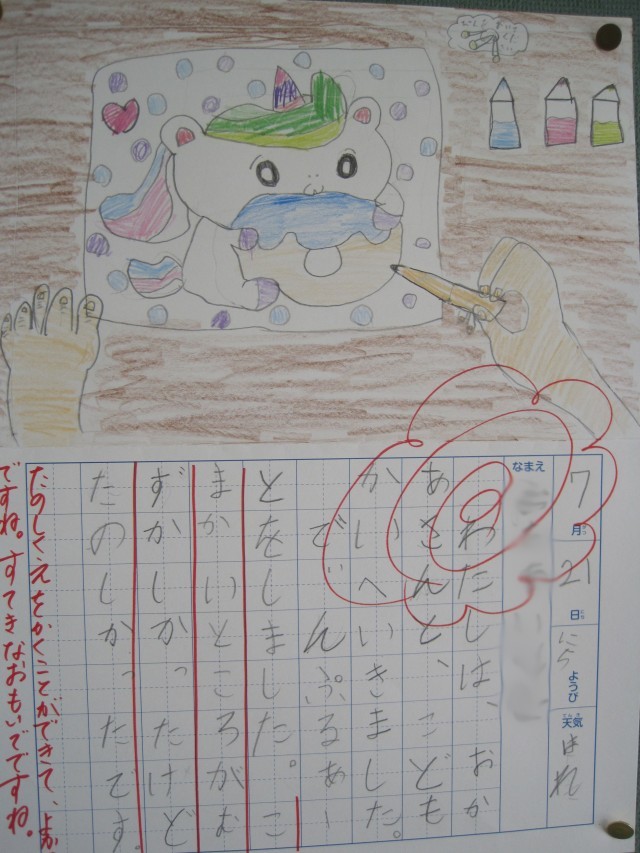 7月21日 ようび 天気 はれ
なまえ
わたしは、おか
あさんと、こども
かいへいきました。
で んぷるあー
とをしました。こ
まかいところがむ
ずかしかったけど
たのしかったです。
たのしくえをかくことができて、よかった
ですね。すてきなおもいでですね。